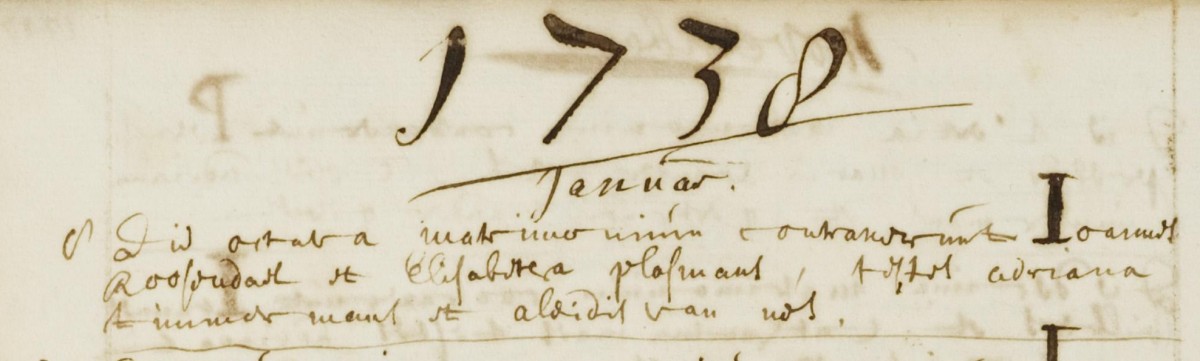 1738
Januar.
8 Die octava matrimonium contraxerunt Ioannes
Roosendael et Elisabetha plasmans, testes adriana
timmermans et aleidis van nes.